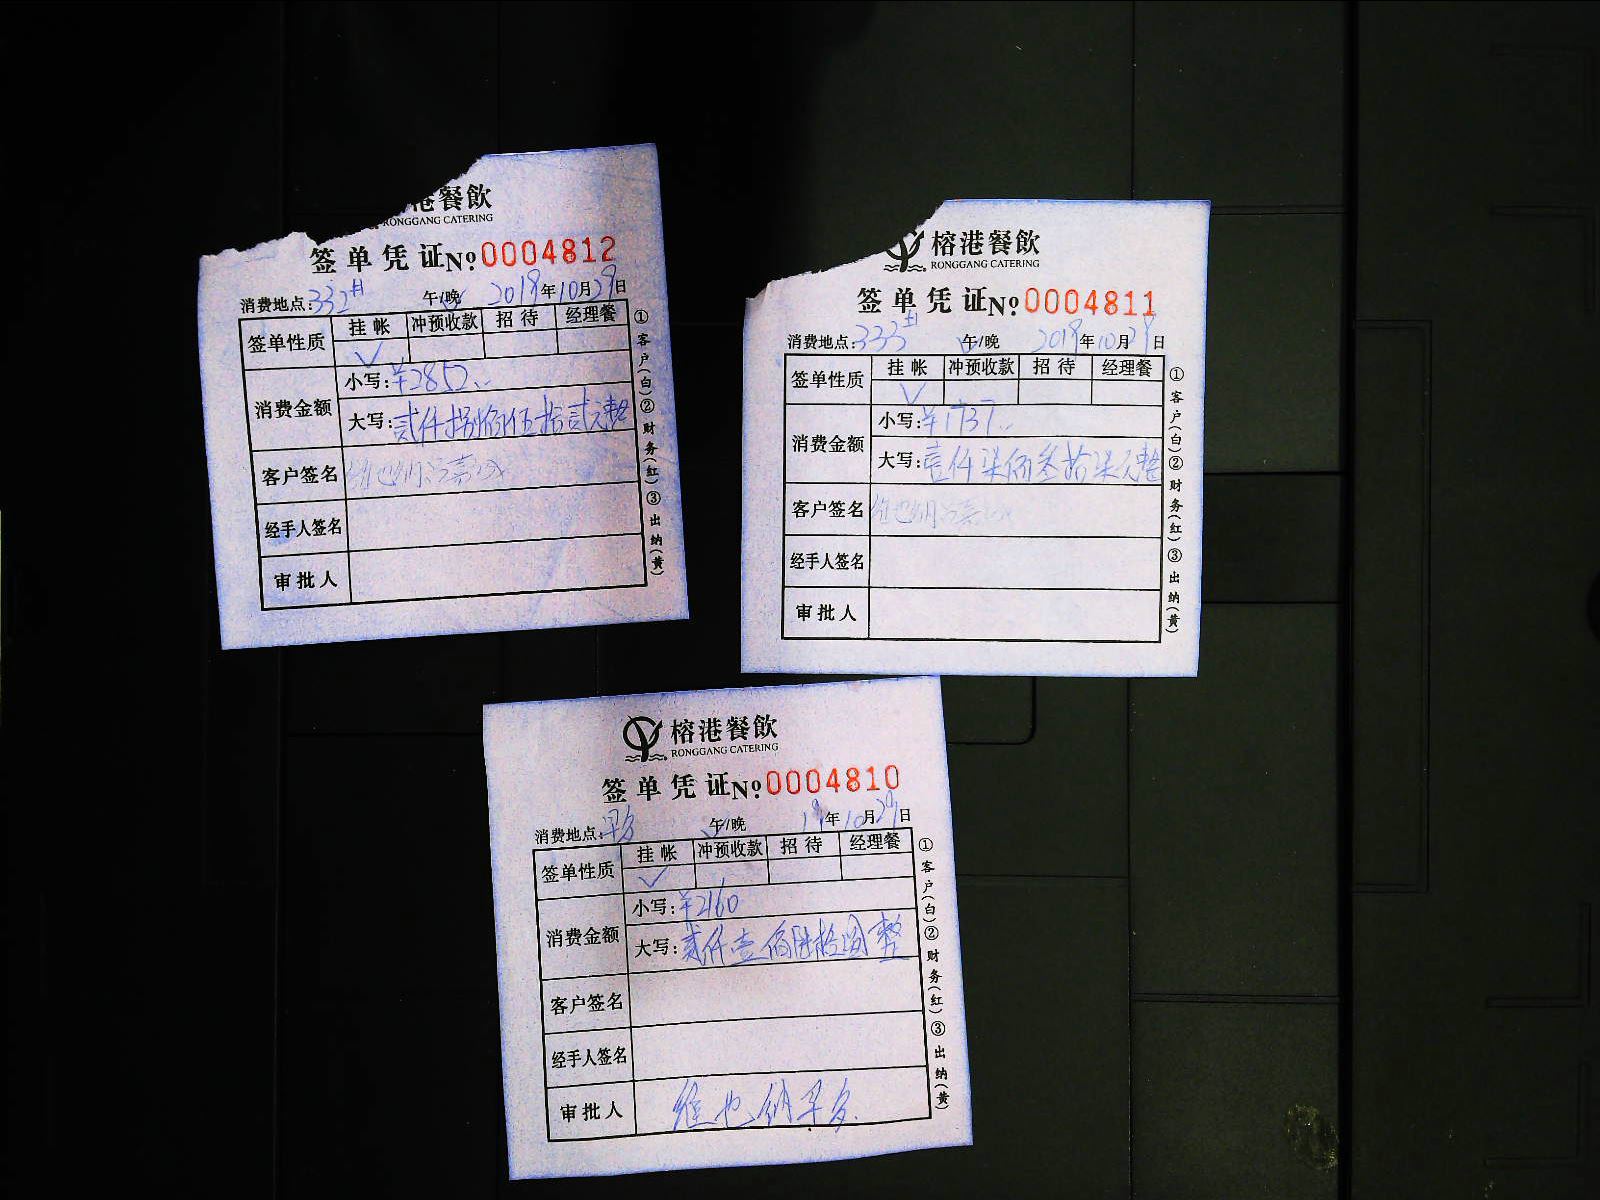 港餐飲
RONGGANG CATERING
签单凭证№0004812
消费地点:332# 午/晚 2019年10月29日
签单性质 挂帐 冲预收款 招待 经理餐
✓
消费金额 小写:¥2852
大写:贰仟捌佰伍拾贰元整
客户签名 维也纳
经手人签名
审批人
①客户(白)②财务(红)③出纳(黄)
榕港餐飲
RONGGANG CATERING
签单凭证№0004811
消费地点:333# 午/晚 2019年10月29日
签单性质 挂帐 冲预收款 招待 经理餐
✓
消费金额 小写:¥1737
大写:壹仟柒佰叁拾柒元整
客户签名 维也纳
经手人签名
审批人
①客户(白)②财务(红)③出纳(黄)
榕港餐飲
RONGGANG CATERING
签单凭证№0004810
消费地点:早 午/晚 19年10月29日
签单性质 挂帐 冲预收款 招待 经理餐
✓
消费金额 小写:¥2160
大写:贰仟壹佰陆拾圆整
客户签名
经手人签名
审批人 维也纳早
①客户(白)②财务(红)③出纳(黄)